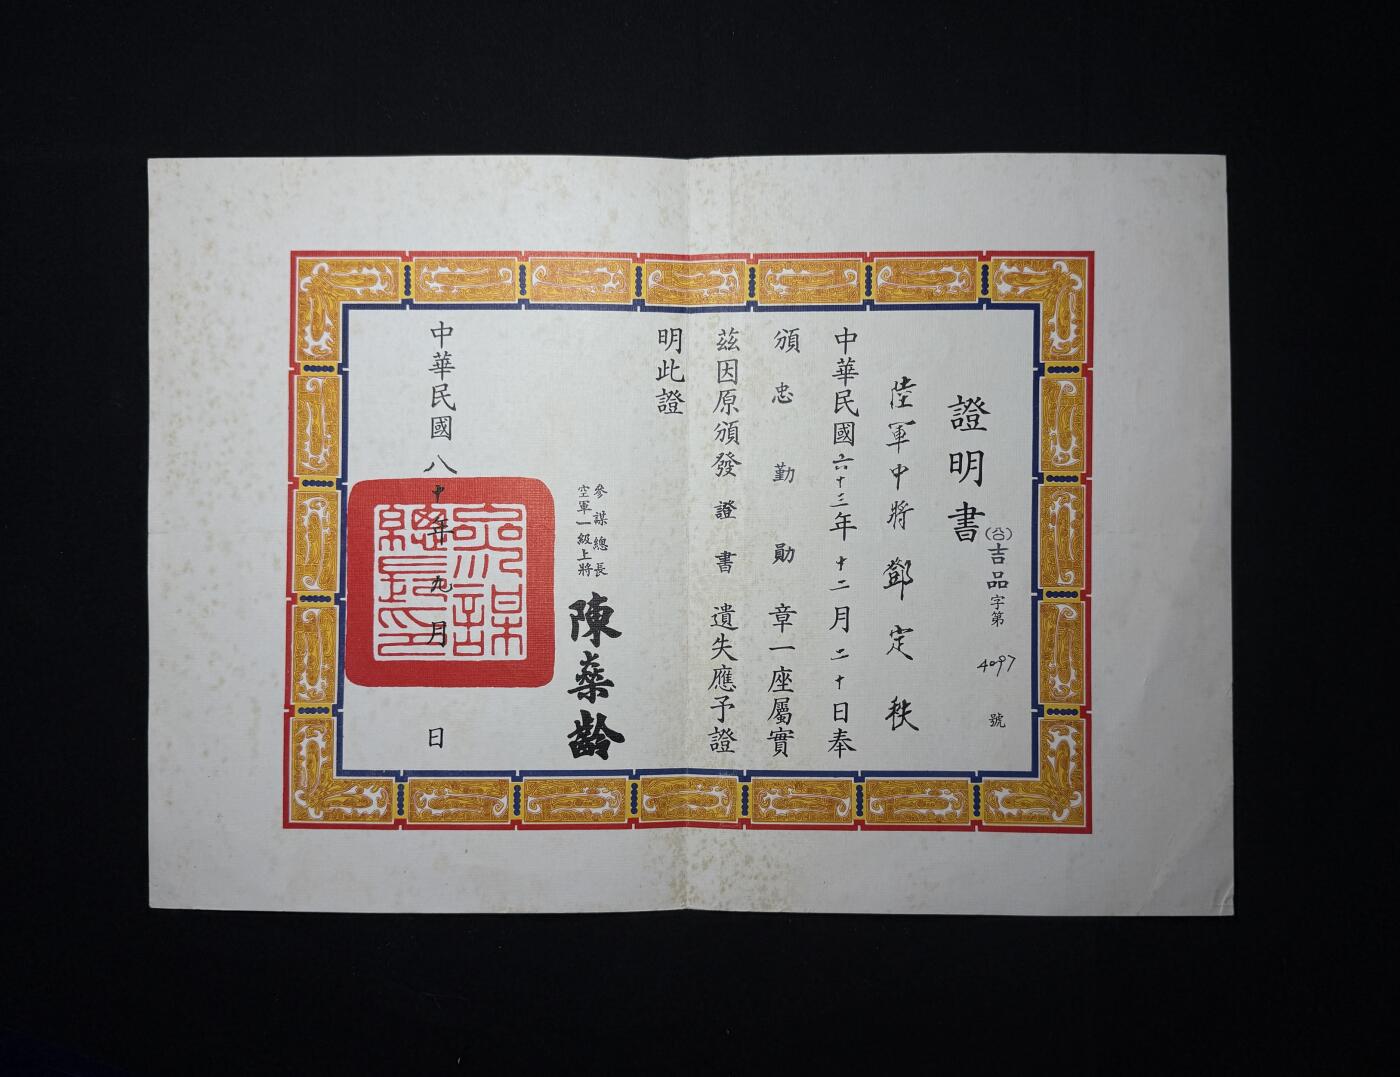 證明書
(公)吉品字第4097號
陸軍中將鄧定秩
中華民國六十三年十二月二十日奉
頒忠勤勛章一座屬實
茲因原頒發證書遺失應予證
明此證
參謀總長
空軍一級上將
陳燊齡
中華民國八十年九月 日
參謀總長印